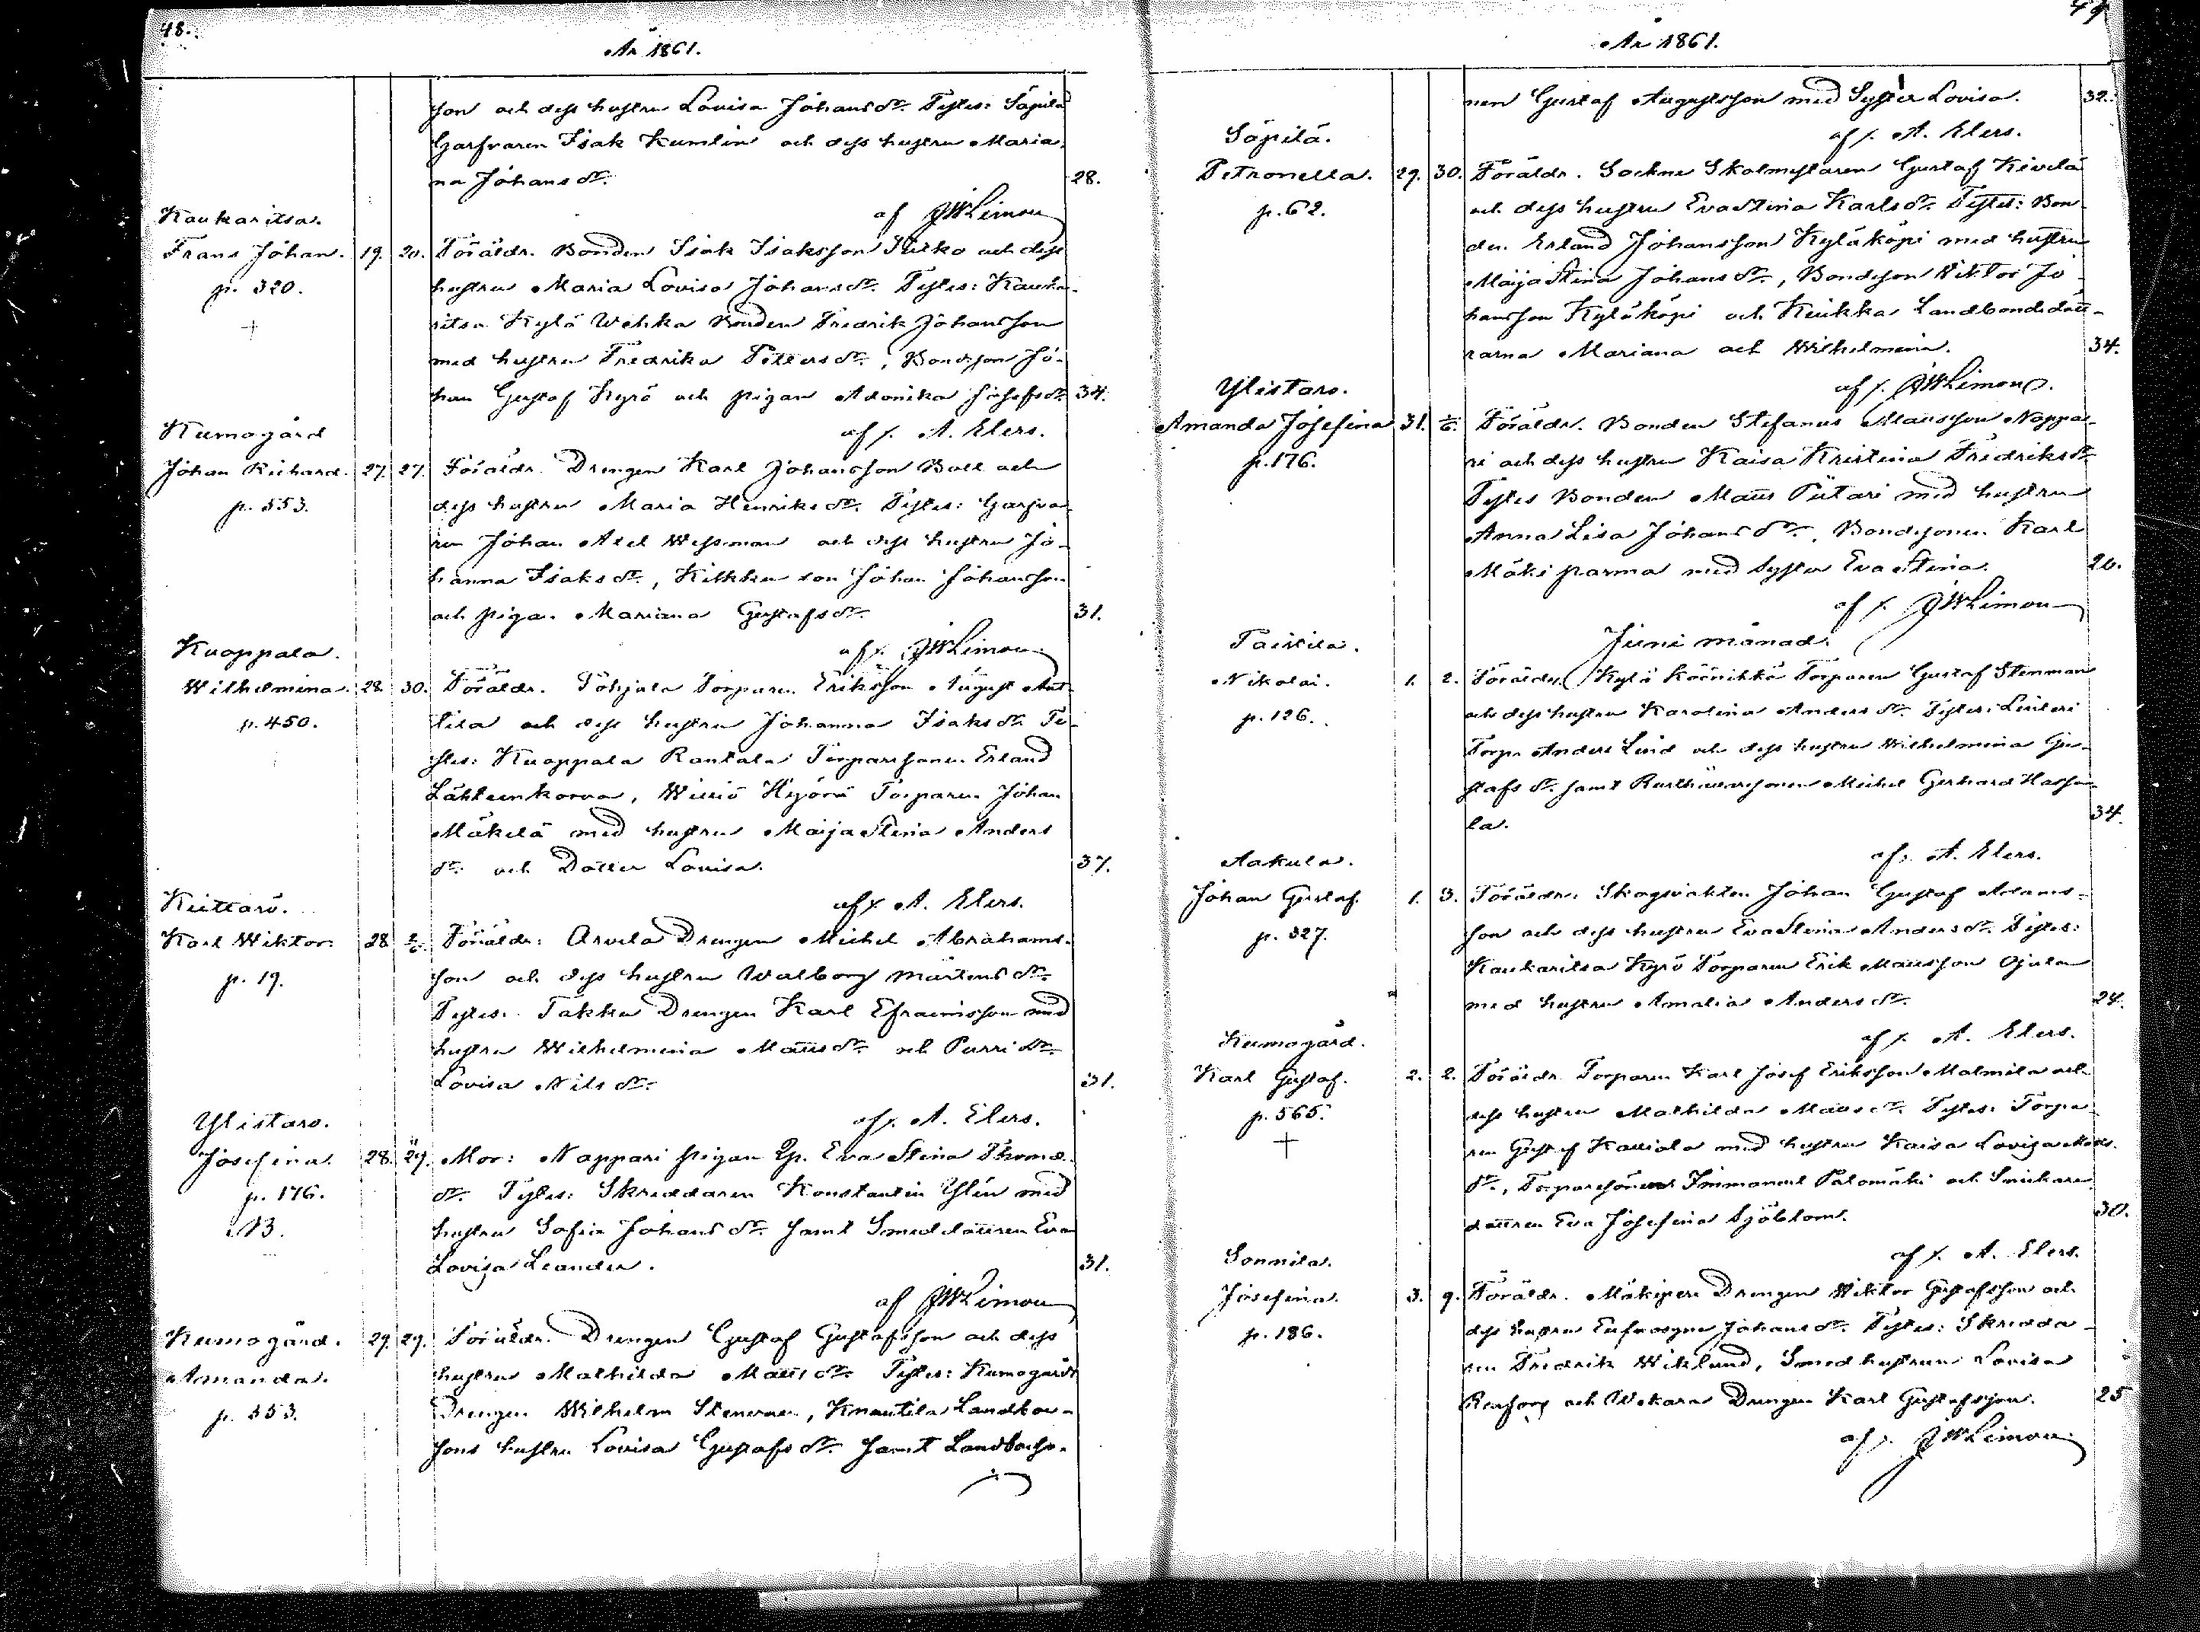 48.
År 1861.
son och dess hustru Lovisa Johansdr. Testes: Säpilä
Garfvaren Isak Kumlin och dess hustru Maria
na Johansdr. 28.
af JWLimon
Kaukaritsa.
Frans Johan. 19. 20. Föräldr. Bonden Isak Isaksson Pirko och dess
p. 320. hustru Maria Lovisa Johansdr. Testes: Kauka-
ritsa Kylä Wehka Bonden Fredrik Johansson
med hustru Fredrika Pettersdr., Bondeson Jo-
han Gustaf Kyrö och pigan Adamika Josefsdr. 34.
af p. A. Elers.
Kumogård
Johan Richard. 27. 27. Föräldr. Drengen Karl Johansson Boll och
p. 553. dess hustru Maria Henriksdr. Testes: Garfva-
ren Johan Axel Wessman och dess hustru Jo-
hanna Isaksdr., son Johan Johansson
och pigan Mariana Gustafsdr. 31.
af p. JWLimon
Kuoppala.
Wilhelmina. 28 30. Föräldr. Pohjala Torparen Eriksson August Ant-
p. 450. tila och dess hustru Johanna Isaksdr. Te-
stes: Kuoppala Rantala Torparesonen Erland
Lähteenkorva, Torparen Johan
Mäkelä med hustru Maija Stina Anders
dr. och Dotter Lovisa. 37.
af p. A. Elers.
Kiettarö.
Karl Wiktor. 28 2/6. Föräldr: Arvela Drengen Michel Abrahams-
p. 19. son och dess hustru Walborg Mårtensdr.
Testes. Takku Drengen Karl Efraimsson med
hustru Wilhelmina Matsdr. och Purri dr.
Lovisa Nilsdr. 31.
af p. A. Elers.
Ylistaro.
Josefina. 28. 29. Mor: Nappari pigan Qp. Eva Stina Thomæ-
p. 176. dr. Testes: Skreddaren Konstantin Ylén med
NB. hustru Sofia Johansdr. samt Smeddottren Eva
Lovisa Leander. 31.
af JWLimon
Kumogård. 29. 29. Föräldr. Drengen Gustaf Gustafsson och dess
Amanda. hustru Mathilda Matsdr. Testes: Kumogårds
p. 553. Drengen Wilhelm Stenman, Knuutila Landbon-
sons hustru Lovisa Gustafsdr. samt Landboso-
49
År 1861.
nen Gustaf Augustsson med Syster Lovisa. 32.
af p. A. Elers.
Säpilä.
Petronella. 29. 30. Föräldr. Sockne Skolmestaren Gustaf Kivelä
p. 62. och dess hustru Eva Stina Karlsdr. Testes: Bon-
den Erland Johansson Kyläköpi med hustru
Maija Stina Johansdr., Bondeson Viktor Jo-
hansson Kyläköpi och Kuikka Landbondedött-
rarna Mariana och Wilhelmina. 34.
af p. JWLimon.
Ylistaro.
Amanda Josefina 31. 2/6. Föräldr. Bonden Stefanus Matsson Nappa-
p. 176. ri och dess hustru Kaisa Kristina Fredriksdr.
Testes Bonden Mats Piitari med hustru
Anna Lisa Johansdr., Bondesonen Karl
Mäki parma med Syster Eva Stina. 26.
af p. JWLimon
Juni månad.
Taistila.
Nikolai. 1. 2. Föräldr. Kylä Köönikkä Torparen Gustaf Stenman
p. 126. och dess hustru Karolina Andersdr. Testes:
Torp. Anders Lind och dess hustru Wilhelmina Gu-
stafsdr. samt Rusthållaresonen Michel Gerhard Hassa-
la. 34.
af p. A. Elers.
Aakula.
Johan Gustaf. 1. 3. Föräldr. Skogsvakten Johan Gustaf Adams-
p. 327. son och dess hustru Eva Stina Andersdr. Testes:
Kaukaritsa Kyrö Torparen Erik Matsson Ojala
med hustru Amalia Andersdr. 24.
af p. A. Elers.
Kumogård.
Karl Gustaf. 2. 2. Föräldr. Torparen Karl Josef Eriksson Malmila och
p. 565. dess hustru Mathilda Matsdr. Testes: Torpa-
ren Gustaf Kauiala med hustru Kaisa Lovisa Mats-
dr., Torparesonen Immanuel Palomäki och Snickare-
dottren Eva Josefina Sjöblom. 30.
af p. A. Elers.
Sonnila.
Josefina. 3. 9. Föräldr. Mäkipere Drengen Wiktor Gustafsson och
p. 186. dess hustru Eufrosyne Johansdr. Testes: Skredda-
ren Fredrik Wiklund, Smedhustrun Lovisa
Renfors och Wakara Drengen Karl Gustafsson. 25
af p. JWLimon